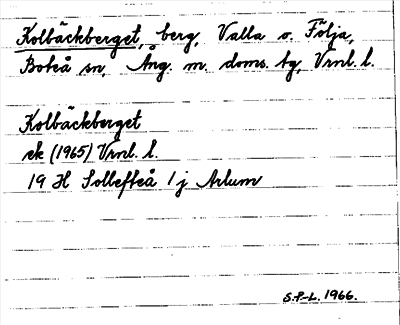 Kolbäckberget, berg, Valla o. Följa,
Boteå sn, Ång. m. doms. tg, Vrnl. l.
Kolbäckberget
ek (1965) Vrnl. l.
19 H Sollefteå 1 j Arlum
S.P-L. 1966.